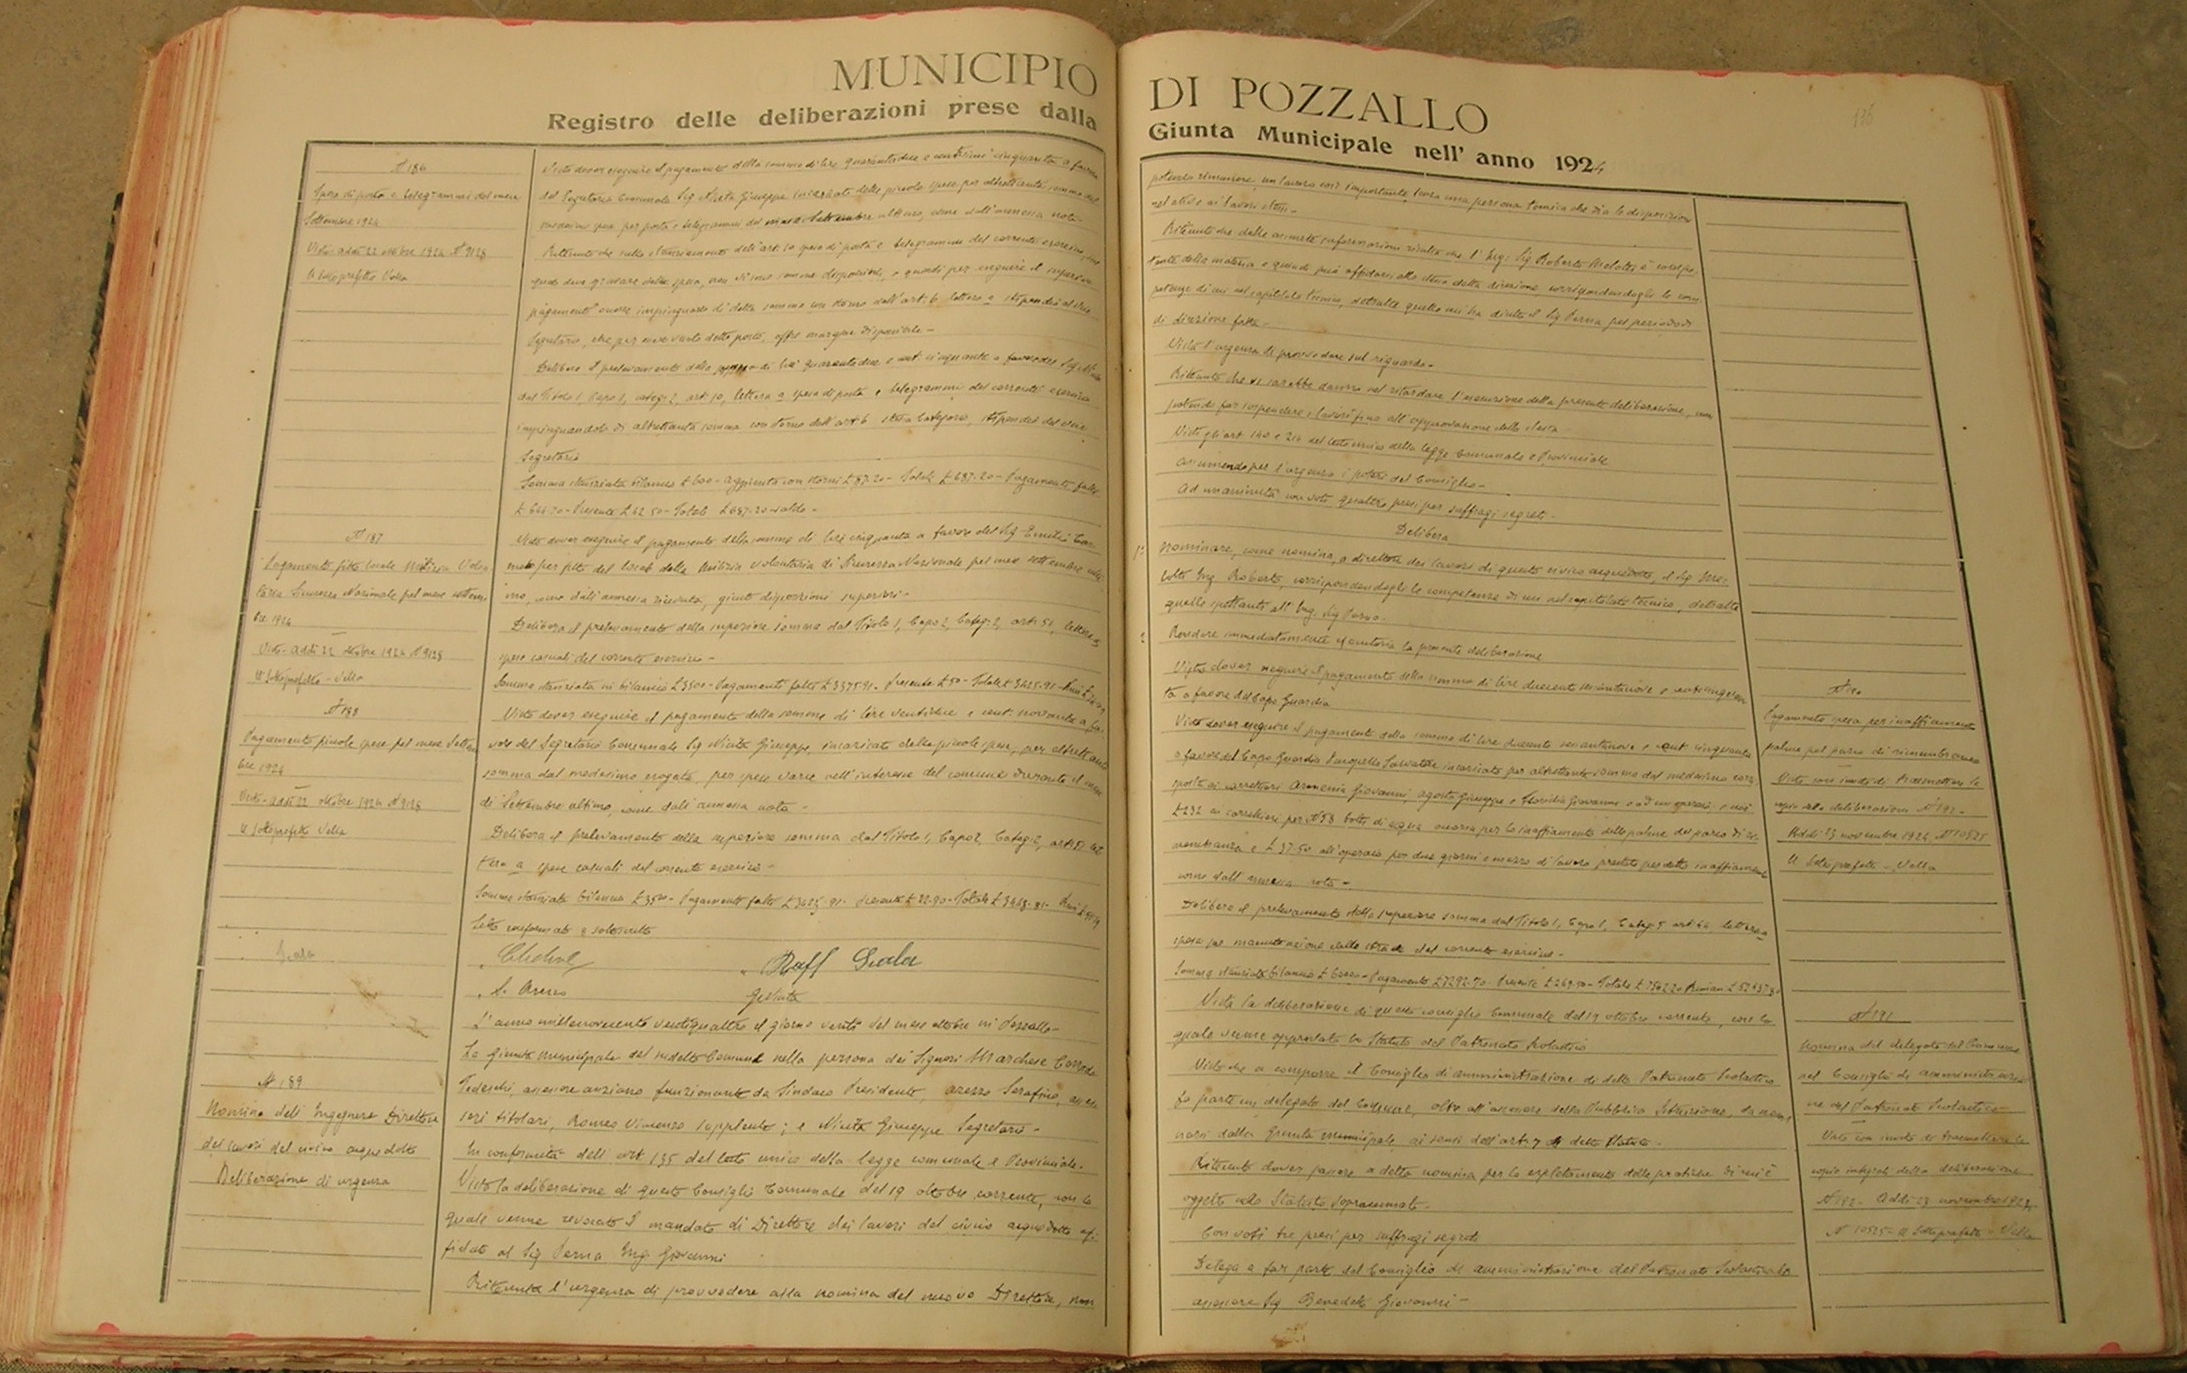 MUNICIPIO DI POZZALLO
Registro delle deliberazioni prese dalla Giunta Municipale nell' anno 1924
N 186
Spese di posta e telegrammi del mese
Settembre 1924
Visto addì 22 ottobre 1924 N 9128
Il Sottoprefetto Vella
Visto dover eseguire il pagamento della somma di lire quarantadue e centesimi cinquanta a favore
del Segretario Comunale Sig Giuseppe incaricato delle piccole spese per altrettanta somma dal
medesimo spesa per posta e telegrammi del mese Settembre ultimo, come dall'annessa nota
Ritenuto che sullo stanziamento dell'art. 10 spese di posta e telegrammi del corrente esercizio, sul
quale deve gravare detta spesa, non vi sono somme disponibili, e quindi per eseguire il superiore
pagamento occorre impinguarlo di detta somma con storno dall'art. 6 lettera a stipendio al
Segretario, che per essere vacante detto posto, offre margine disponibile -
Delibera il prelevamento della somma di lire quarantadue e cent. cinquanta a favore del Sig
dal Titolo I, Capo I, categ. 2, art. 10, lettera a spese di posta e telegrammi del corrente esercizio
impinguandolo di altrettanta somma con storno dall'art 6 stessa Categoria, stipendio del
Segretario
Somma stanziata bilancio £ 600 - aggiunta con storni £ 87.20 - Totale £ 687.20 - Pagamenti fatti
- Presente £ 42.50 - Totale £ 687.20 - saldo -
N 187
Pagamento fitto locale Milizia Volon
taria Sicurezza Nazionale pel mese settem
bre 1924
Visto - addì 22 ottobre 1924 N 9128
Il Sottoprefetto - Vella
Visto dover eseguire il pagamento della somma di lire cinquanta a favore del Sig Emilio
per fitto del locale della Milizia volontaria di Sicurezza Nazionale pel mese settembre ulti
mo, come dall'annessa ricevuta, giuste disposizioni superiori -
Delibera il prelevamento della superiore somma dal Titolo I, Capo 2, Categ. 2, art. 51, lettera a
spese casuali del corrente esercizio -
Somma stanziata in bilancio £ 3500 - Pagamenti fatti £ 3375.91 - Presente £ 50 - Totale £ 3425.91
N 188
Pagamento piccole spese pel mese Settem
bre 1924
Visto - addì 22 ottobre 1924 N 9128
Il Sottoprefetto Vella
Visto dover eseguire il pagamento della somma di lire ventidue e cent. novanta a fa
vore del Segretario Comunale Sig Giuseppe, incaricato delle piccole spese, per altrettanta
somma dal medesimo erogata per spese varie nell'interesse del comune durante il mese
di Settembre ultimo, come dall'annessa nota -
Delibera il prelevamento della superiore somma dal Titolo I, Capo 2, Categ. 2, art. 51 let
tera a spese casuali del corrente esercizio -
Somma stanziata bilancio £ 3500 - Pagamenti fatti £ 3425.91 - Presente £ 22.90 - Totale
Letto confermato e sottoscritto
Raff Scala
S. Arezzo
L'anno millenovecento ventiquattro il giorno venti del mese ottobre in Pozzallo -
La Giunta municipale del suddetto Comune nella persona dei Signori Marchese Corrado
N 189
Nomina dell'Ingegnere Direttore
dei lavori del civico acquedotto
Deliberazione di urgenza
Tedeschi, assessore anziano funzionante da Sindaco Presidente, Arezzo Serafino, asses
sori titolari, Romeo Vincenzo supplente; e Giuseppe Segretario -
In conformità dell'art 135 del testo unico della legge comunale e Provinciale.
Vista la deliberazione di questo Consiglio Comunale del 19 ottobre corrente, con la
quale venne revocato il mandato di Direttore dei lavori del civico acquedotto af
fidato al Sig Perna Ing. Giovanni
Ritenuta l'urgenza di provvedere alla nomina del nuovo Direttore, non
potendo rimanere, un lavoro così importante, senza una persona tecnica che dia le disposizioni
relative ai lavori stessi.
Ritenuto che dalle assunte informazioni risulta che l'Ing. Sig Roberto
della materia e quindi può affidarsi allo stesso detta direzione, corrispondendogli le com
petenze di cui nel capitolato tecnico, detratte quelle cui ha diritto il Sig Perna pel periodo di
di direzione fatta.
Vista l'urgenza di provvedere sul riguardo.
Ritenuto che vi sarebbe danno nel ritardare l'esecuzione della presente deliberazione, non
potendosi sospendere i lavori fino all'approvazione della stessa
Visti gli art. 140 e 214 del testo unico della legge Comunale e Provinciale
Assumendo per l'urgenza i poteri del Consiglio -
Ad unanimità con voti quattro, presi per suffragi segreti -
Delibera
1° Nominare, come nomina, a direttore dei lavori di questo civico acquedotto, il Sig
Ing. Roberto, corrispondendogli le competenze di cui nel capitolato tecnico, detratte
quelle spettanti all'Ing. Sig Perna -
2 Rendere immediatamente esecutoria la presente deliberazione
Visto dover eseguire il pagamento della somma di lire duecento sessantanove e cent. cinquan
ta a favore del Capo Guardia
N 190
Pagamento spesa per inaffiamento
palme pel parco di rimembranza
Visto con invito di trasmettere la
copia della deliberazione N 192 -
Addì 23 novembre 1924 N 10525
Il Sottoprefetto - Vella
Visto dover eseguire il pagamento della somma di lire duecento sessantanove e cent cinquanta
a favore del Capo Guardia Salvatore incaricato per altrettanta somma dal medesimo corri
sposta ai carrettieri Armenia Giovanni, Agosta Giuseppe e Giovanni e ad un operaio e cioè
£ 232 ai carrettieri per N 58 botti di acqua occorsa per lo inaffiamento delle palme del parco di ri
membranza e £ 37.50 all'operaio per due giorni e mezzo di lavoro prestato per detto inaffiamento
come dall'annessa nota -
Delibera il prelevamento della superiore somma dal Titolo I, Capo I, Categ. 5 art 44 lettera a
spese per manutenzione delle strade del corrente esercizio -
Somma stanziata bilancio - Pagamenti - Presente £ 269.50 - Totale
N 191
Nomina del delegato del Comune
nel Consiglio di amministrazio
ne del Patronato Scolastico
Visto con invito di trasmettere la
copia integrale della deliberazione
N 192 - Addì 23 novembre 1924
N 10525 - Il Sottoprefetto - Vella
Vista la deliberazione di questo consiglio Comunale del 19 ottobre corrente, con la
quale venne approvato lo Statuto del Patronato Scolastico
Visto che a comporre il Consiglio di amministrazione di detto Patronato Scolastico
fa parte un delegato del Comune, oltre all'assessore della Pubblica Istruzione, da nomi
narsi dalla Giunta municipale, ai sensi dell'art. 7 di detto Statuto -
Ritenuto dover passare a detta nomina per lo espletamento delle pratiche di cui è
oggetto lo Statuto sopracennato.
Con voti tre presi per suffragi segreti
Delega a far parte del Consiglio di amministrazione del Patronato Scolastico lo
assessore Sig Benedetto Giovanni -